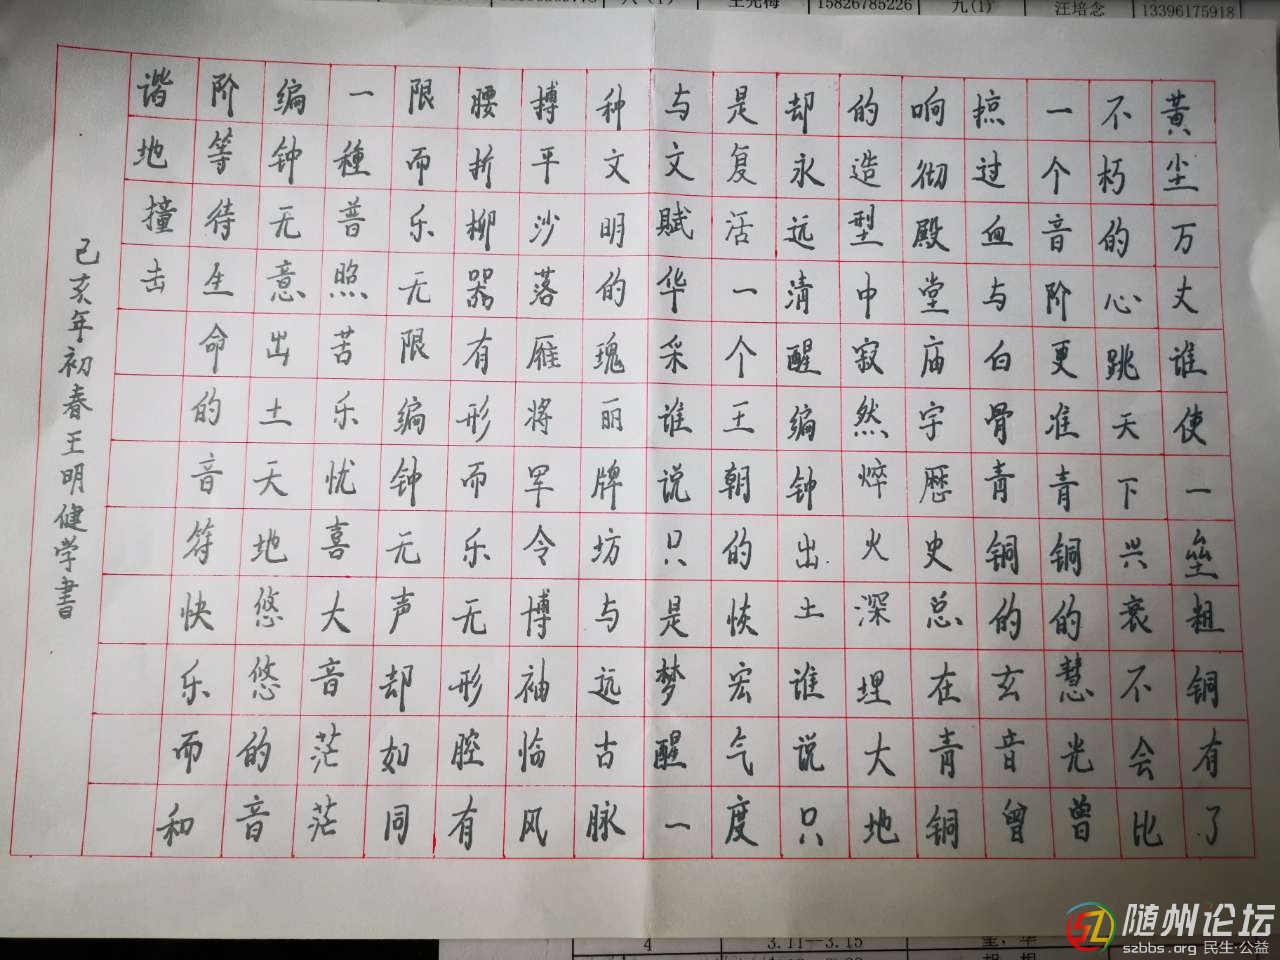 15826785226 九(1) 汪培念 13396175918
黄尘万丈谁使一垒粗铜有了
不朽的心跳天下兴衰不会比
一个音阶更准青铜的慧光曾
掠过血与白骨青铜的玄音曾
响彻殿堂庙宇歷史总在青铜
的造型中寂然焠火深埋大地
却永远清醒编钟出土谁说只
是复活一个王朝的恢宏气度
与文赋华采谁说只是梦醒一
种文明的瑰丽牌坊与远古脉
搏平沙落雁将军令博袖临风
腰折柳器有形而乐无形腔有
限而乐无限编钟无声却如同
一種普照苦乐忧喜大音茫茫
编钟无意出土天地悠悠的音
阶等待生命的音符快乐而和
谐地撞击
己亥年初春王明健学書
4 3.11—3.15
随州论坛
szbbs.org 民生·公益